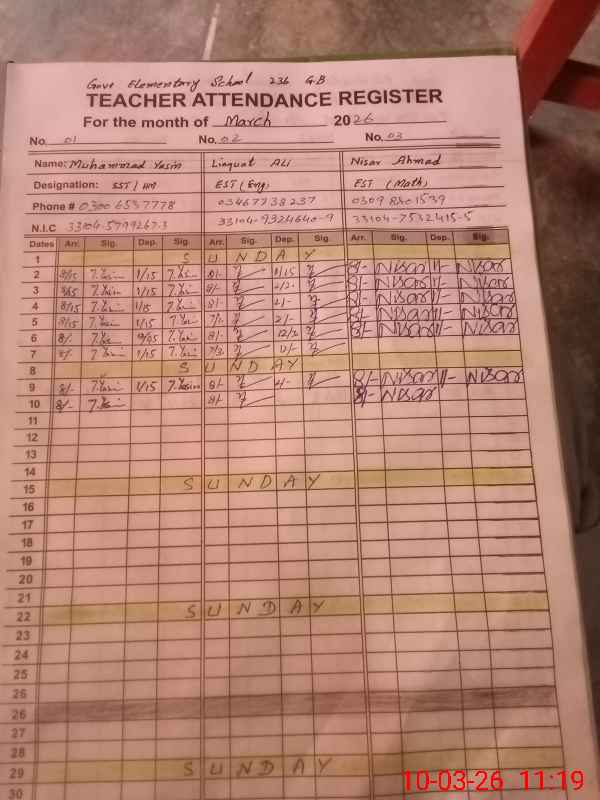 Govt Elementary School 236 G.B
TEACHER ATTENDANCE REGISTER
For the month of March 2026
No. 01 No. 02 No. 03
Name: Muhammad Yasin Liaquat Ali Nisar Ahmad
Designation: SST/HM EST (Eng) EST (Math)
Phone # 03006537778 03467738237 0309 8301539
N.I.C 33104-5799267-3 33104-9324640-9 33104-7532415-5
Dates Arr. Sig. Dep. Sig. Arr. Sig. Dep. Sig. Arr. Sig. Dep. Sig.
1 SUNDAY
2 8/15 1/15 8/- 8/- Nisar Nisar
3 1/15 8/- 8/- Nisar Nisar
4 8/15 8/- 8/- Nisar Nisar
5 8/15 1/15 2/- 8/- Nisar Nisar
6 8/- 8/- 8/- Nisar Nisar
7 8/- 1/15
8 SUNDAY
9 8/- 1/15 8/- 8/- Nisar Nisar
10 8/- 8/- 8/- Nisar
11
12
13
14
15 SUNDAY
16
17
18
19
20
21
22 SUNDAY
23
24
25
26
26
27
28
29 SUNDAY
30
10-03-26 11:19